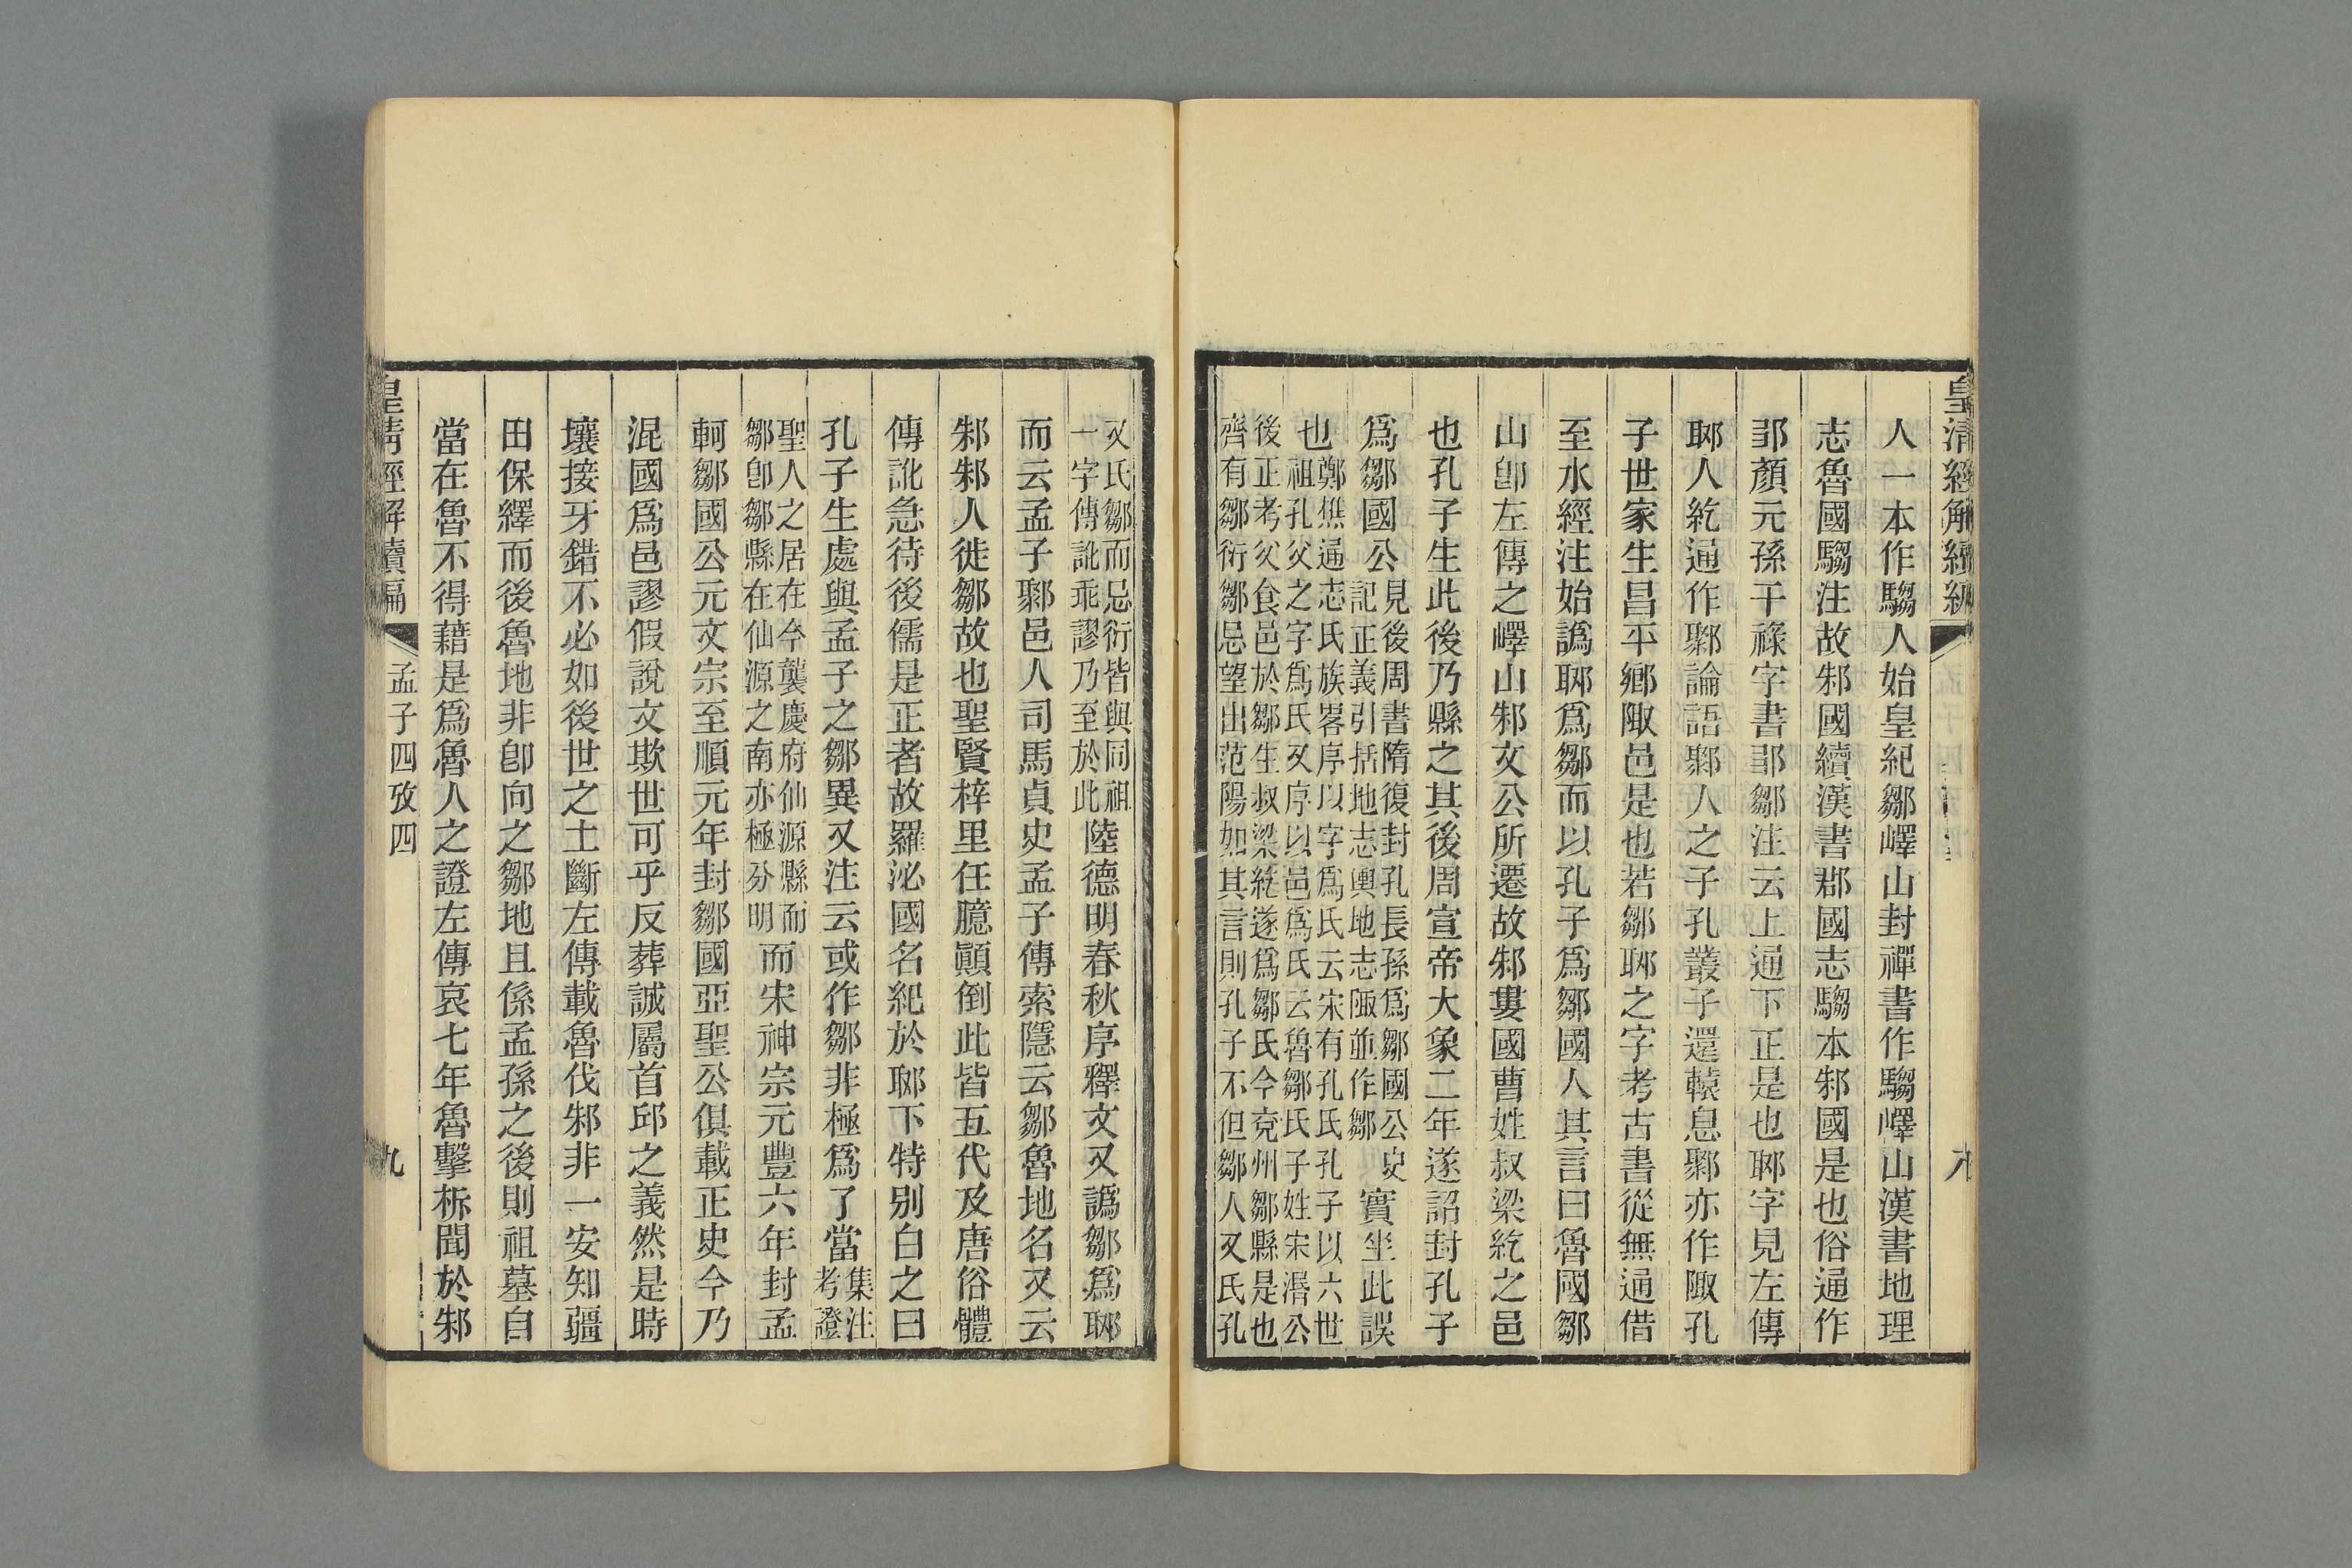 皇清經解續編
八
人一本作騶人始皇紀鄒嶧山封禪書作騶嶧山漢書地理
志魯國騶注故邾國續漢書郡國志騶本邾國是也俗通作
郰顏元孫干祿字書郰鄒注云上通下正是也郰字見左傳
郰人紇通作鄹論語鄹人之子孔叢子還轅息鄹亦作陬孔
子世家生昌平鄉陬邑是也若鄒郰之字考古書從無通借
至水經注始譌郰爲鄒而以孔子爲鄒國人其言曰魯國鄒
山卽左傳之嶧山邾文公所遷故邾婁國曹姓叔梁紇之邑
也孔子生此後乃縣之其後周宣帝大象二年遂詔封孔子
爲鄒國公見後周書隋復封孔長孫爲鄒國公史記正義引括地志輿地志陬並作鄒實坐此誤
也鄭樵通志氏族畧序以字爲氏云宋有孔氏孔子以六世祖孔父之字爲氏又序以邑爲氏云魯鄒氏子姓宋湣公
後正考父食邑於鄒生叔梁紇遂爲鄒氏今兗州鄒縣是也齊有鄒衍鄒忌望出范陽如其言則孔子不但鄒人又氏孔
又氏鄒而忌衍皆與同祖一字傳訛乖謬乃至於此陸德明春秋序釋文又譌鄒爲郰
而云孟子鄹邑人司馬貞史孟子傳索隱云鄒魯地名又云
邾邾人徙鄒故也聖賢梓里任臆顚倒此皆五代及唐俗體
傳訛急待後儒是正者故羅泌國名紀於郰下特别白之曰
孔子生處與孟子之鄒異又注云或作鄒非極爲了當集注考證
聖人之居在今襲慶府仙源縣而鄒卽鄒縣在仙源之南亦極分明而宋神宗元豐六年封孟
軻鄒國公元文宗至順元年封鄒國亞聖公俱載正史今乃
混國爲邑謬假說文欺世可乎反葬誠屬首邱之義然是時
壤接牙錯不必如後世之土斷左傳載魯伐邾非一安知疆
田保繹而後魯地非卽向之鄒地且係孟孫之後則祖墓自
當在魯不得藉是爲魯人之證左傳哀七年魯擊柝聞於邾
皇清經解續編
孟子四攷四
九